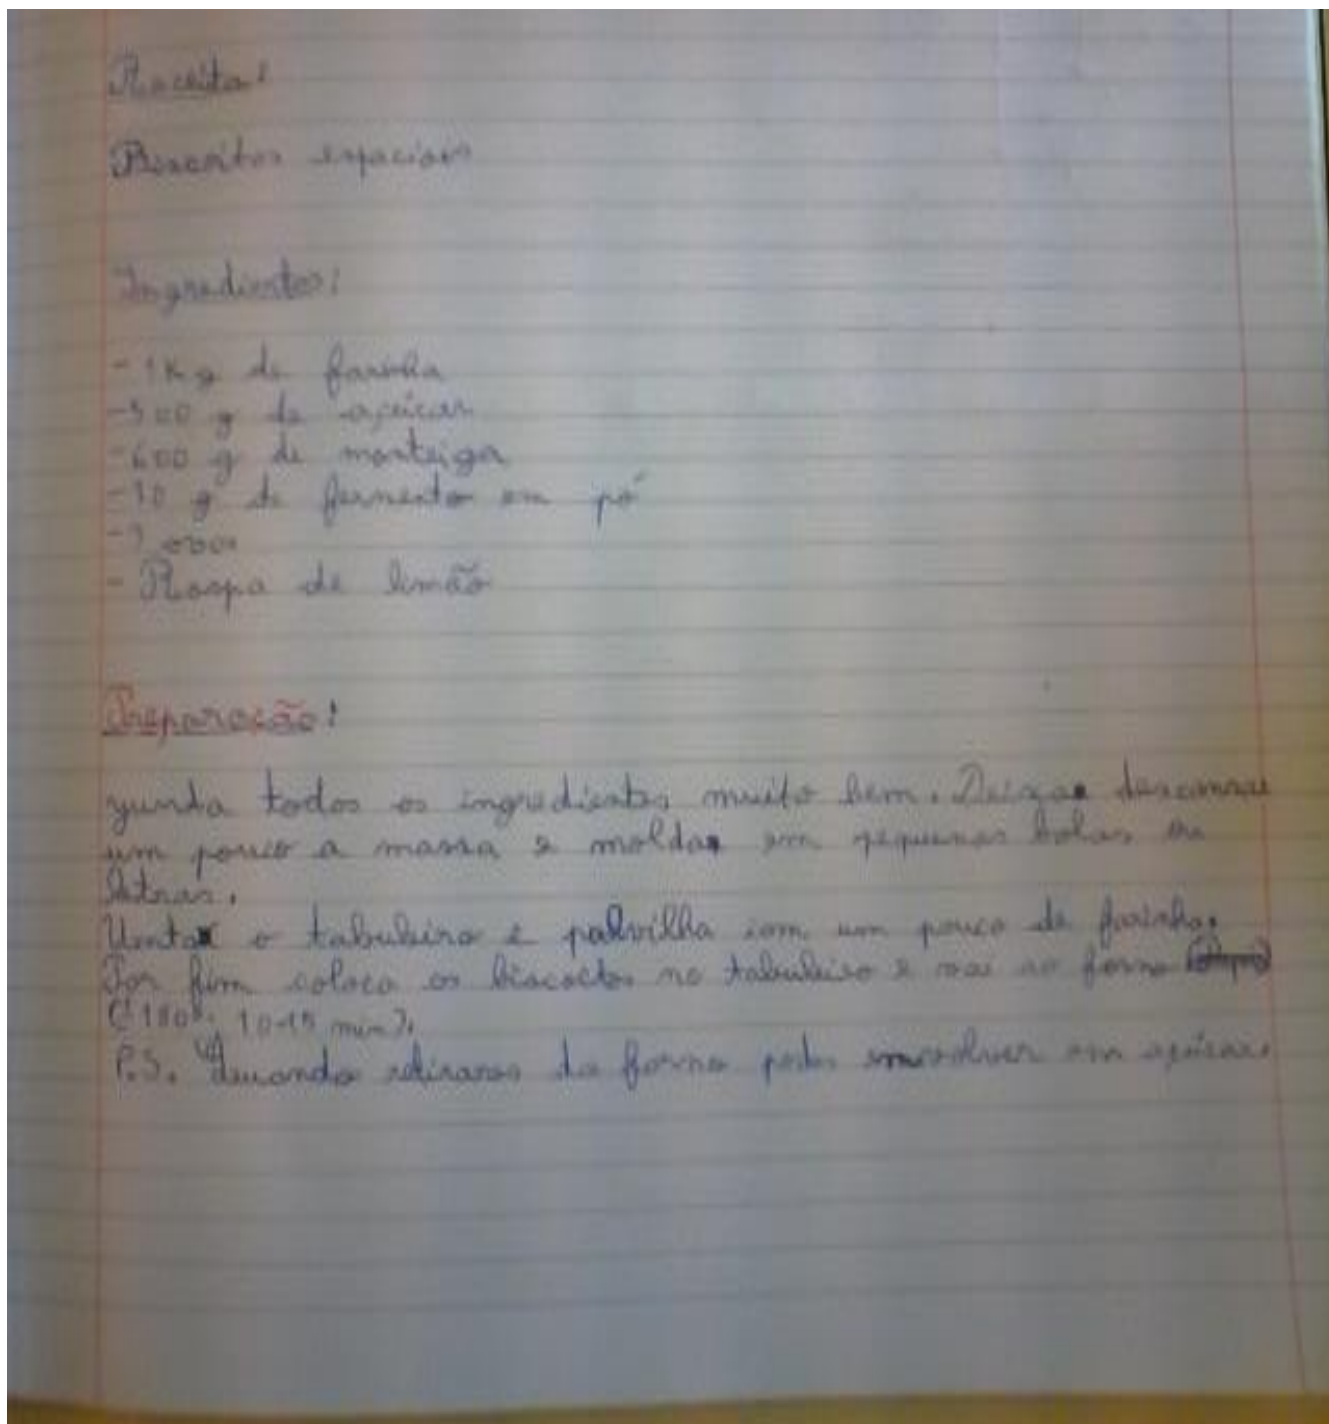 Receita:
Biscoitos espaciais
Ingredientes:
- 1 Kg de farinha
- 500 g de açúcar
- 600 g de manteiga
- 10 g de fermento em pó
- ovos
- Raspa de limão
Preparação:
yunta todos os ingredientes muito bem. Deixa descansar
um pouco a massa e molda em pequenas bolas ou
letras.
Unta o tabuleiro e polvilha com um pouco de farinha.
Por fim coloca os biscoitos no tabuleiro e vai ao forno
(180º; 10-15 min).
P.S. Quando retirares do forno podes envolver em açúcar.